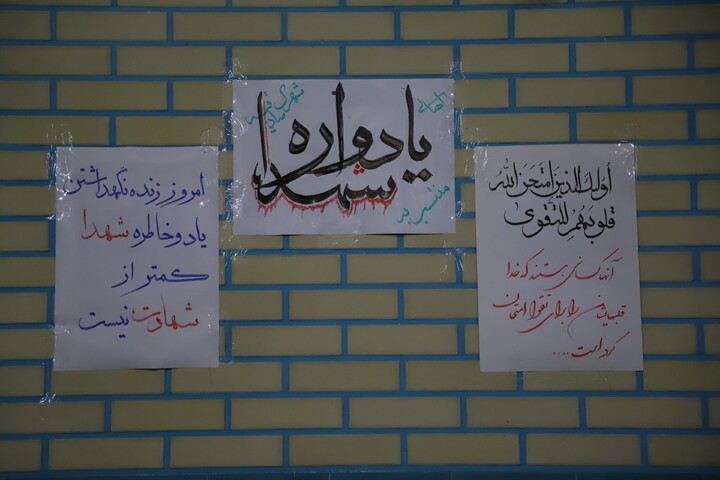 یادواره
شهدا
شهدای
منتسب به
أولئك الذين امتحن الله
قلوبهم للتقوى
آنها کسانی هستند که خدا
قلبهایشان را برای تقوا امتحان
کرده است....
امروز زنده نگهداشتن
یاد و خاطره شهدا
کمتر از
شهادت نیست